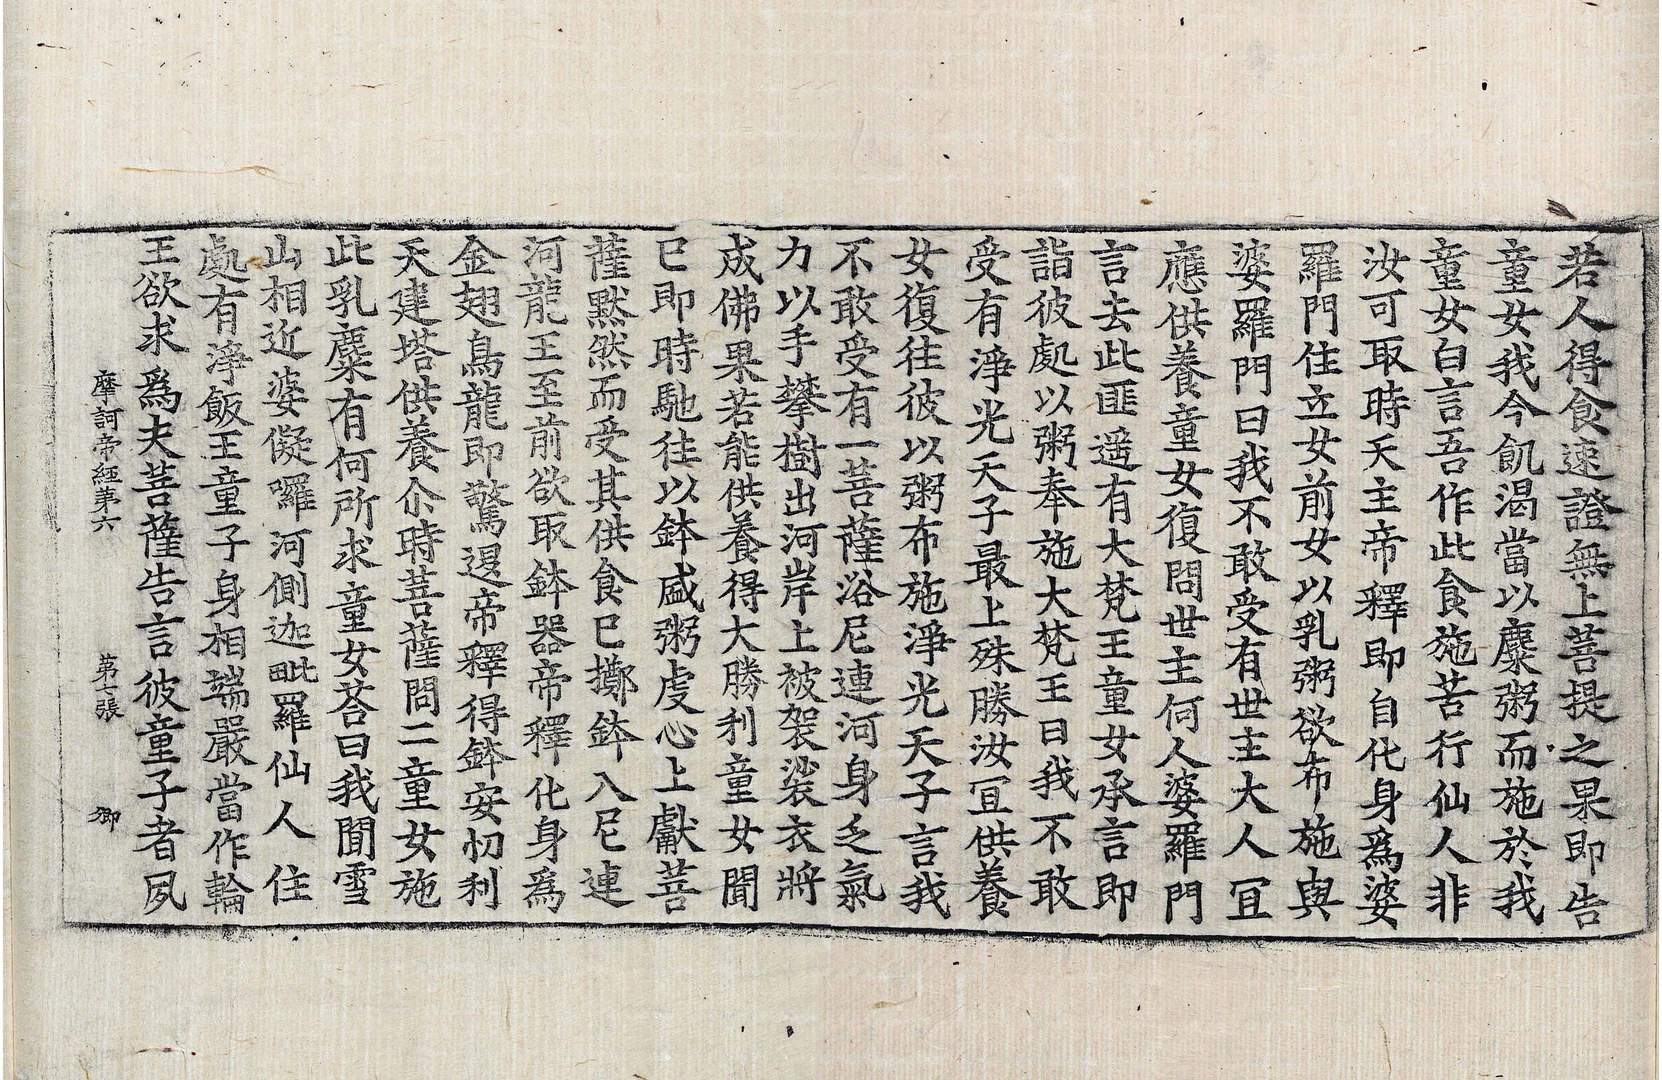 若人得食速證無上菩提之果即告
童女我今飢渴當以麋粥而施於我
童女白言吾作此食施苦行仙人非
汝可取時天主帝釋即自化身爲婆
羅門住立女前女以乳粥欲布施與
婆羅門曰我不敢受有世主大人冝
應供養童女復問世主何人婆羅門
言去此匪遥有大梵王童女承言即
詣彼處以粥奉施大梵王曰我不敢
受有淨光天子最上殊勝汝冝供養
女復往彼以粥布施淨光天子言我
不敢受有一菩薩浴尼連河身乏氣
力以手攀樹出河岸上被袈裟衣將
成佛果若能供養得大勝利童女聞
已即時馳往以鉢盛粥虔心上獻菩
薩默然而受其供食已擲鉢入尼連
河龍王至前欲取鉢器帝釋化身爲
金翅鳥龍即驚還帝釋得鉢安忉利
天建塔供養尒時菩薩問二童女施
此乳麋有何所求童女荅曰我聞雪
山相近婆儗囉河側迦毗羅仙人住
處有淨飯王童子身相端嚴當作輪
王欲求爲夫菩薩告言彼童子者夙
摩訶帝經第六 第七張 御